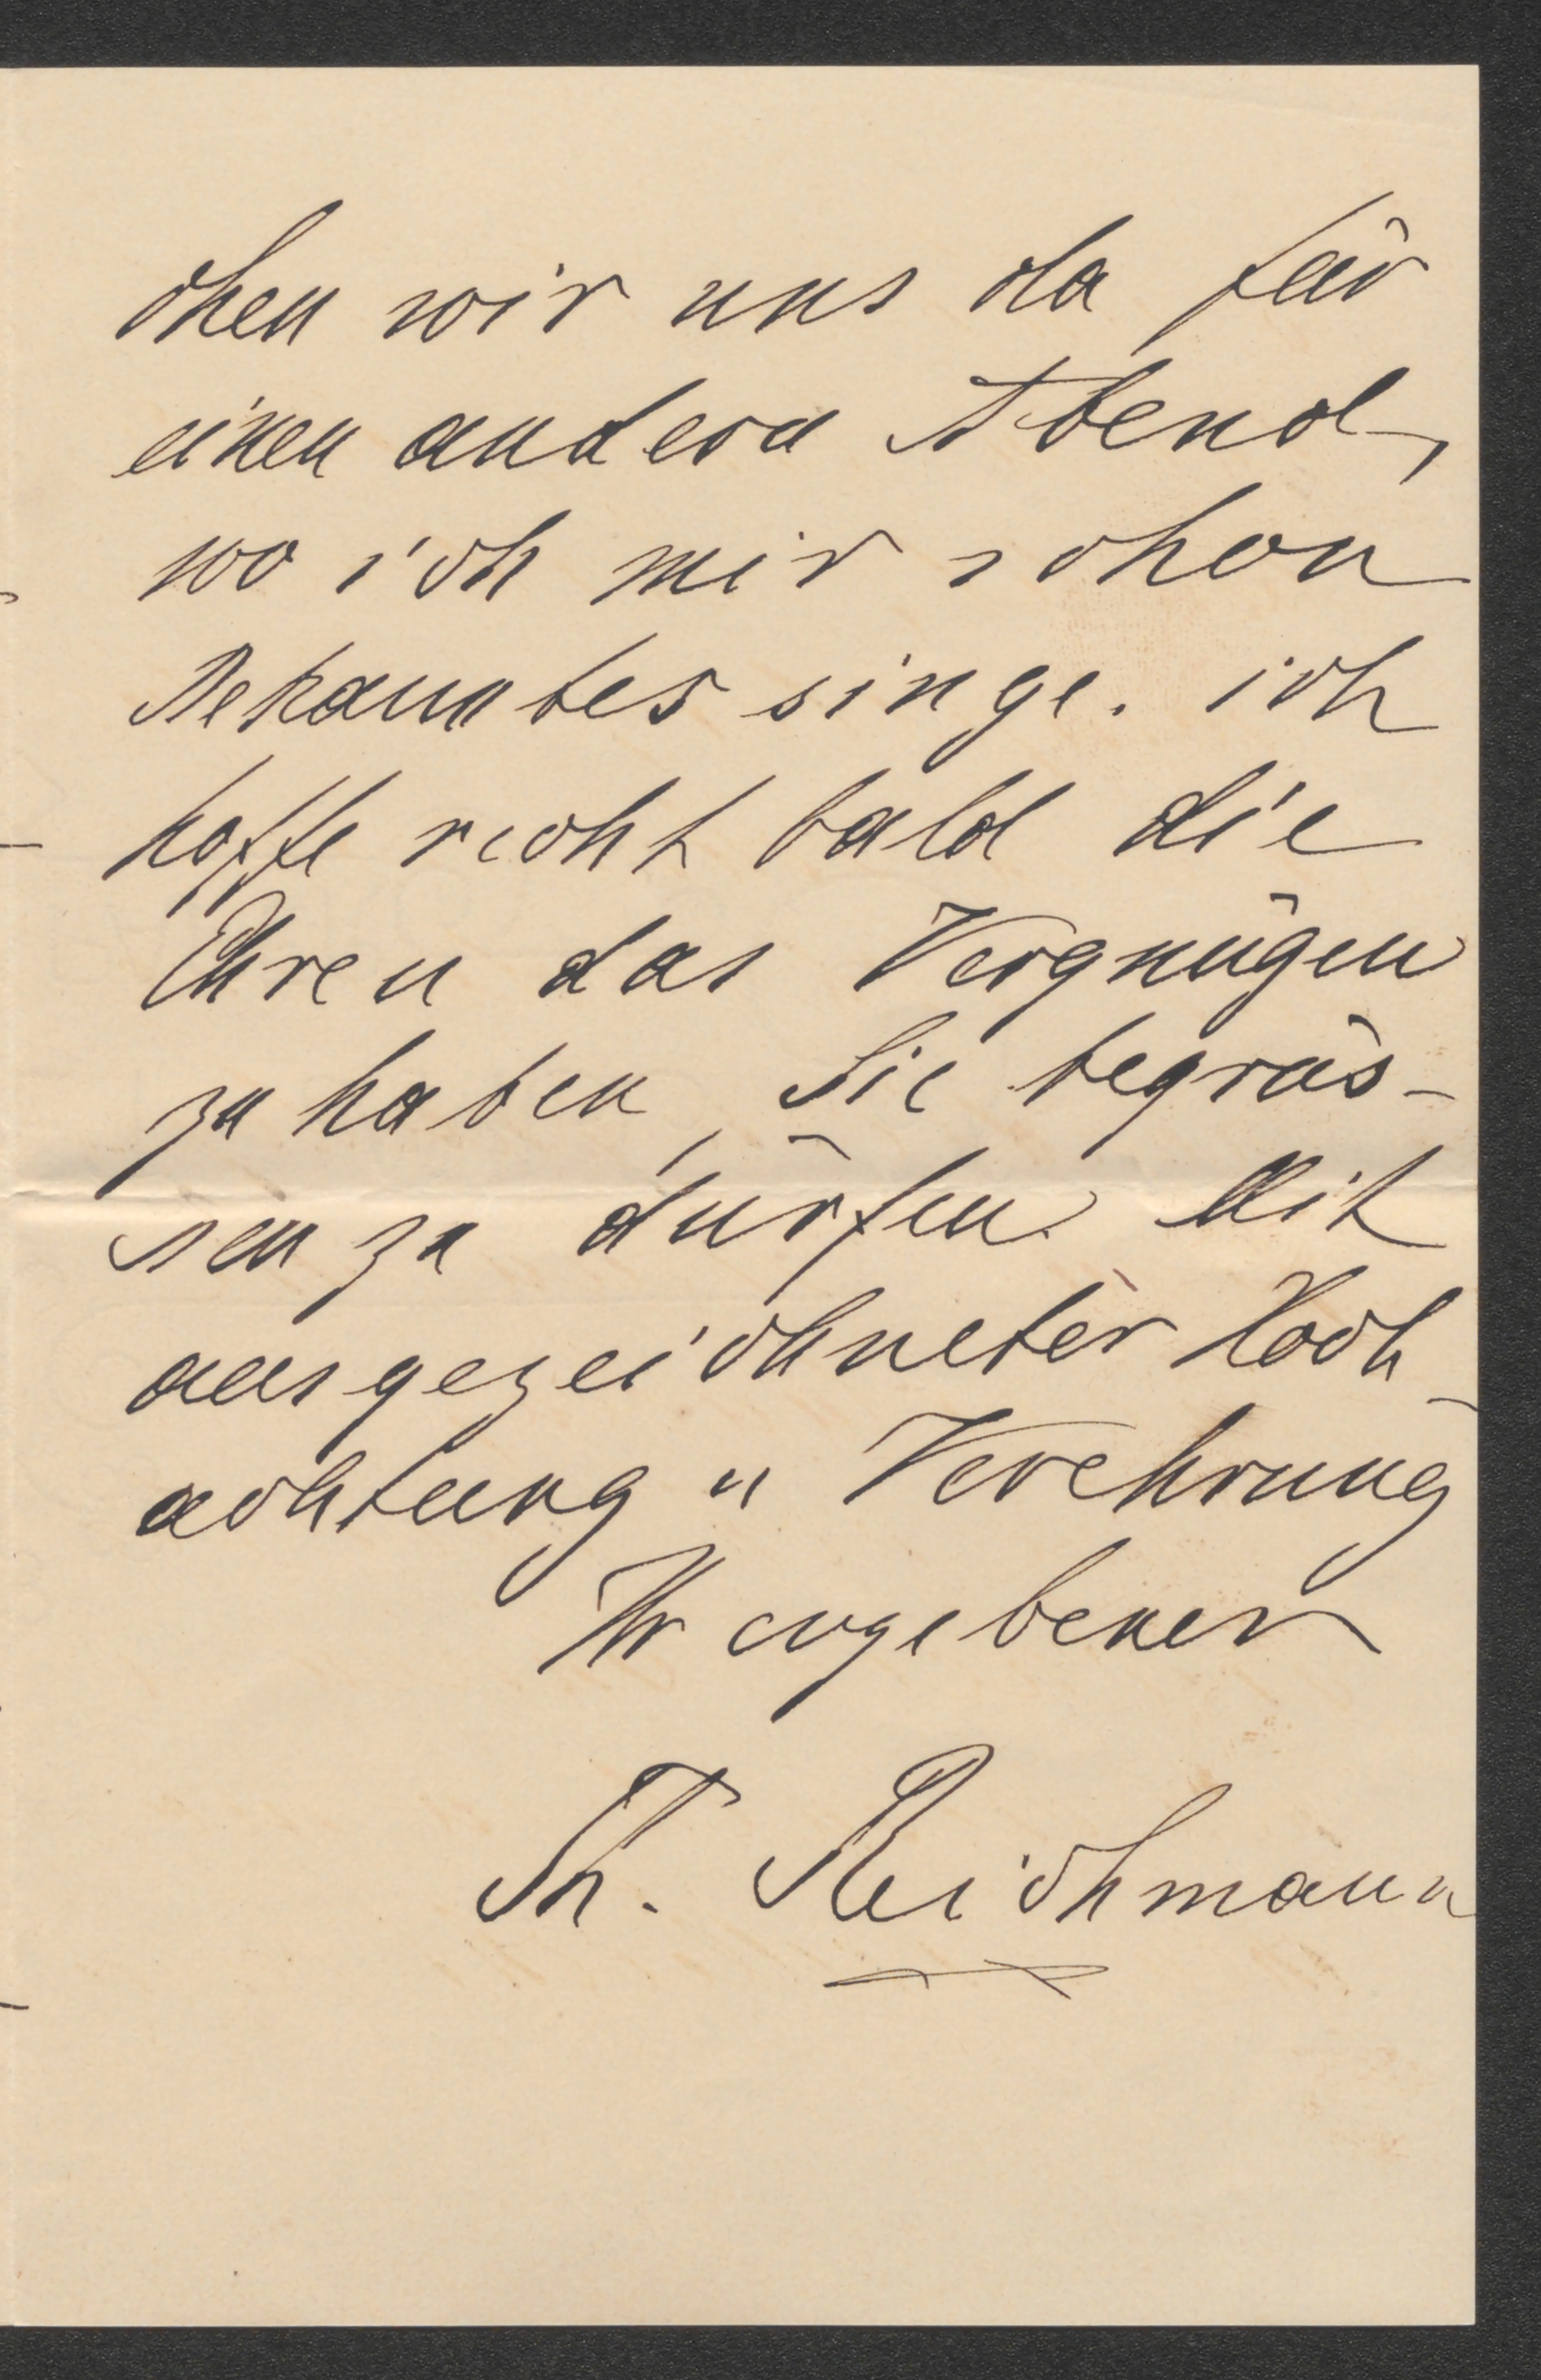 chen wir uns da für
einen andern Abend,
wo ich mir schon
Bekanntes singe. ich
hoffe recht bald die
Ehre u das Vergnügen
zu haben, Sie begrüs-
sen zu dürfen. Mit
ausgezeichneter Hoch-
achtung u Verehrung
Ihr ergebener
Th. Reichmann